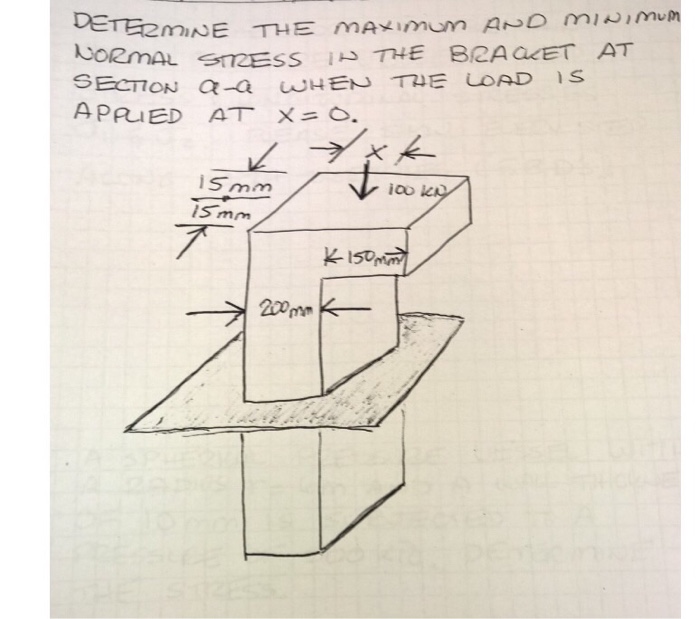 DETERMINE THE MAXIMUM AND MINIMUM
NORMAL STRESS IN THE BRACKET AT
SECTION a-a WHEN THE LOAD IS
APPLIED AT X=0.
X
15mm
100 KN
15mm
150mm
200mm